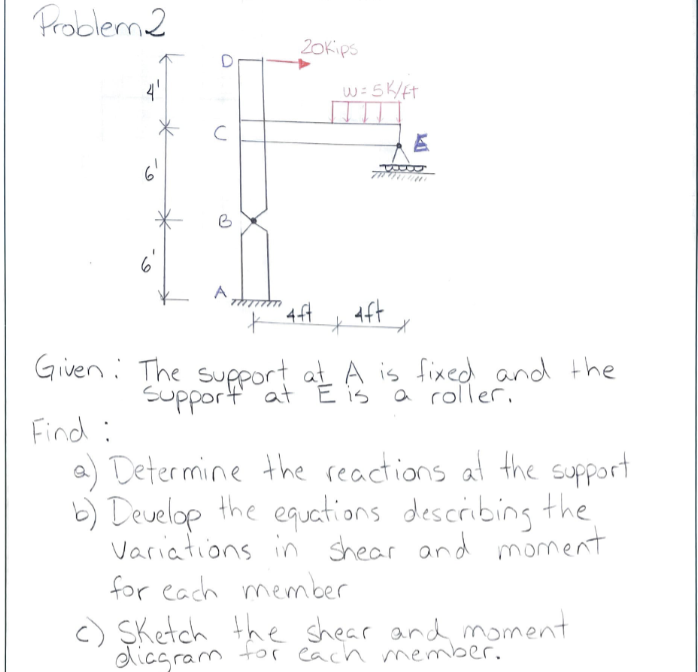 Problem 2
20Kips
D
4'
w=5K/ft
C
E
6'
B
6'
A
4ft 4ft
Given: The support at A is fixed and the
support at E is a roller.
Find:
a) Determine the reactions at the support
b) Develop the equations describing the
variations in shear and moment
for each member
c) Sketch the shear and moment
diagram for each member.